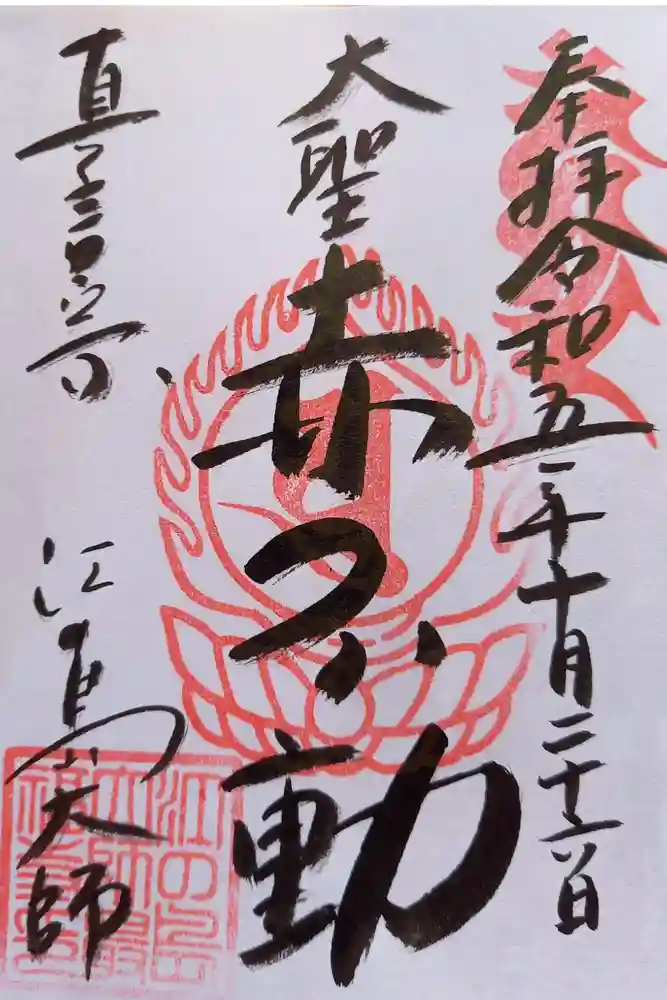 奉拝 令和五年十月二十六日
大聖
赤不動
真言宗
江島大師
江の島
大師最
福寺印